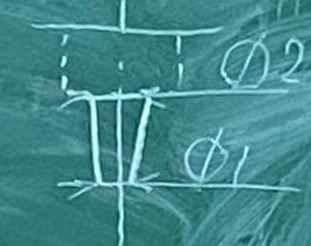 ∅2
∅1